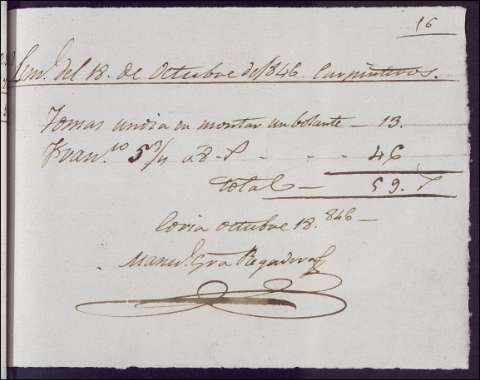 16
Sem.ª del 18. de Octubre de 1846. Carpinteros.
Tomas un dia en montar un bolante — 13.
Fran.co 5 3/4 a 8 - - - 46
total — 59.
Coria Octubre 18. 846 —
Manu.l Gra